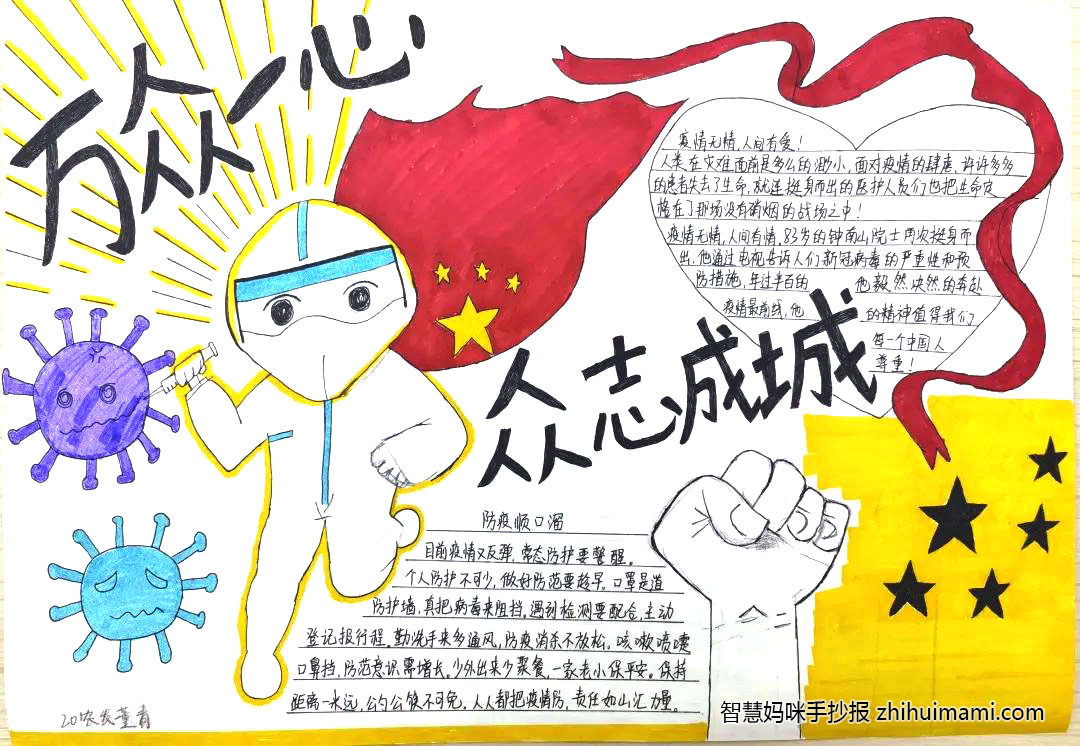 万众一心
疫情无情,人间有爱!
人类在灾难面前是多么的渺小,面对疫情的肆虐,许许多多
的患者失去了生命,就连挺身而出的医护人员们也把生命定
格在了那场没有硝烟的战场之中!
疫情无情,人间有情。83岁的钟南山院士再次挺身而
出,他通过电视告诉人们新冠病毒的严重性和预
防措施,年过半百的 他毅然决然的奔赴
疫情最前线,他 的精神值得我们
每一个中国人
尊重!
众志成城
防疫顺口溜
目前疫情又反弹,常态防护要警醒。
个人防护不可少,做好防范要趁早。口罩是道
防护墙,真把病毒来阻挡。遇到检测要配合,主动
登记报行程。勤洗手来多通风,防疫消杀不放松。咳嗽喷嚏
口鼻挡,防范意识需增长。少外出来少聚餐,一家老小保平安。保持
距离一米远,公勺公筷不可免,人人都把疫情防,责任如山汇力量。
20农发董青
智慧妈咪手抄报 zhihuimami.com